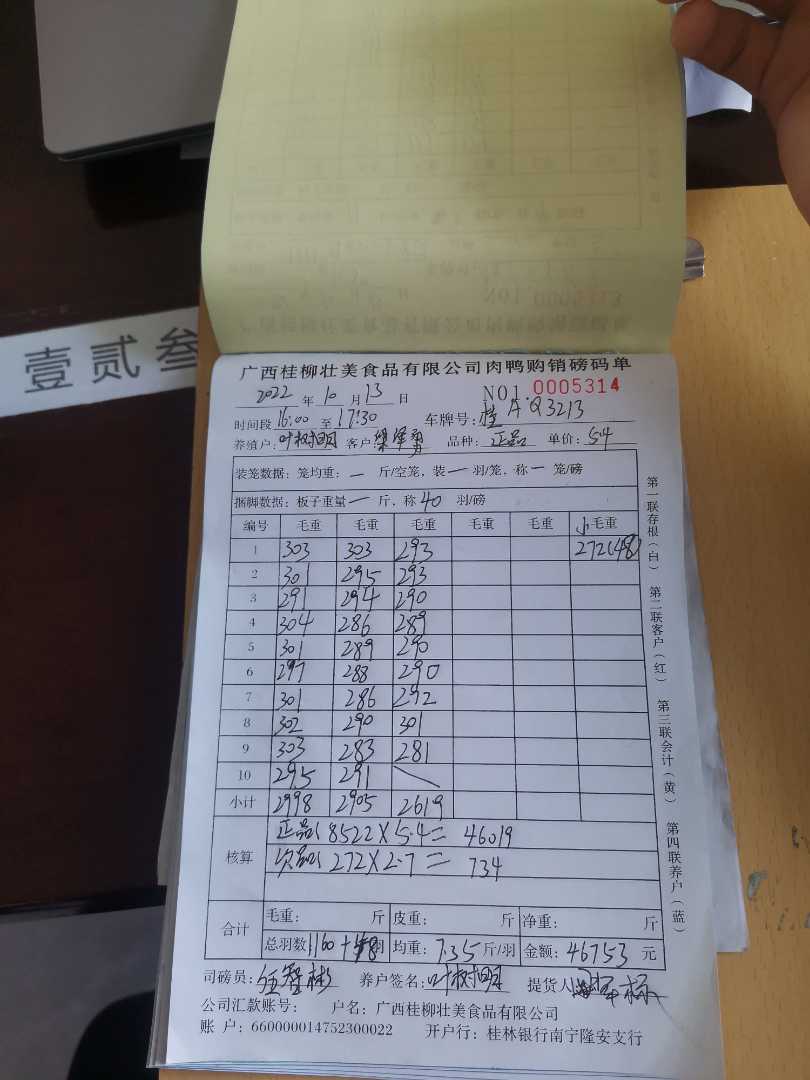 壹贰叁
广西桂柳壮美食品有限公司肉鸭购销磅码单
2022 年 10 月 13 日 NO1 0005314
时间段 16:00 至 17:30 车牌号: 桂A·Q3213
养殖户: 叶树明 客户: 品种: 正品 单价: 5.4
装笼数据: 笼均重: — 斤/空笼, 装 — 羽/笼, 称 — 笼/磅
捆脚数据: 板子重量 — 斤, 称 40 羽/磅
编号 毛重 毛重 毛重 毛重 毛重 小毛重
1 303 303 293 272(48)
2 301 295 293
3 291 294 290
4 304 286 289
5 301 289 290
6 297 288 290
7 301 286 292
8 302 290 301
9 303 283 281
10 295 291
小计 2998 2905 2619
核算 正品: 8522×5.4= 46019
次品: 272×2.7= 734
合计 毛重: 斤 皮重: 斤 净重: 斤
总羽数 1160+48羽 均重: 7.35 斤/羽 金额: 46753 元
司磅员: 养户签名: 叶树明 提货人
公司汇款账号: 户名: 广西桂柳壮美食品有限公司
账 户: 660000014752300022 开户行: 桂林银行南宁隆安支行
第一联存根(白) 第二联客户(红) 第三联会计(黄) 第四联养户(蓝)